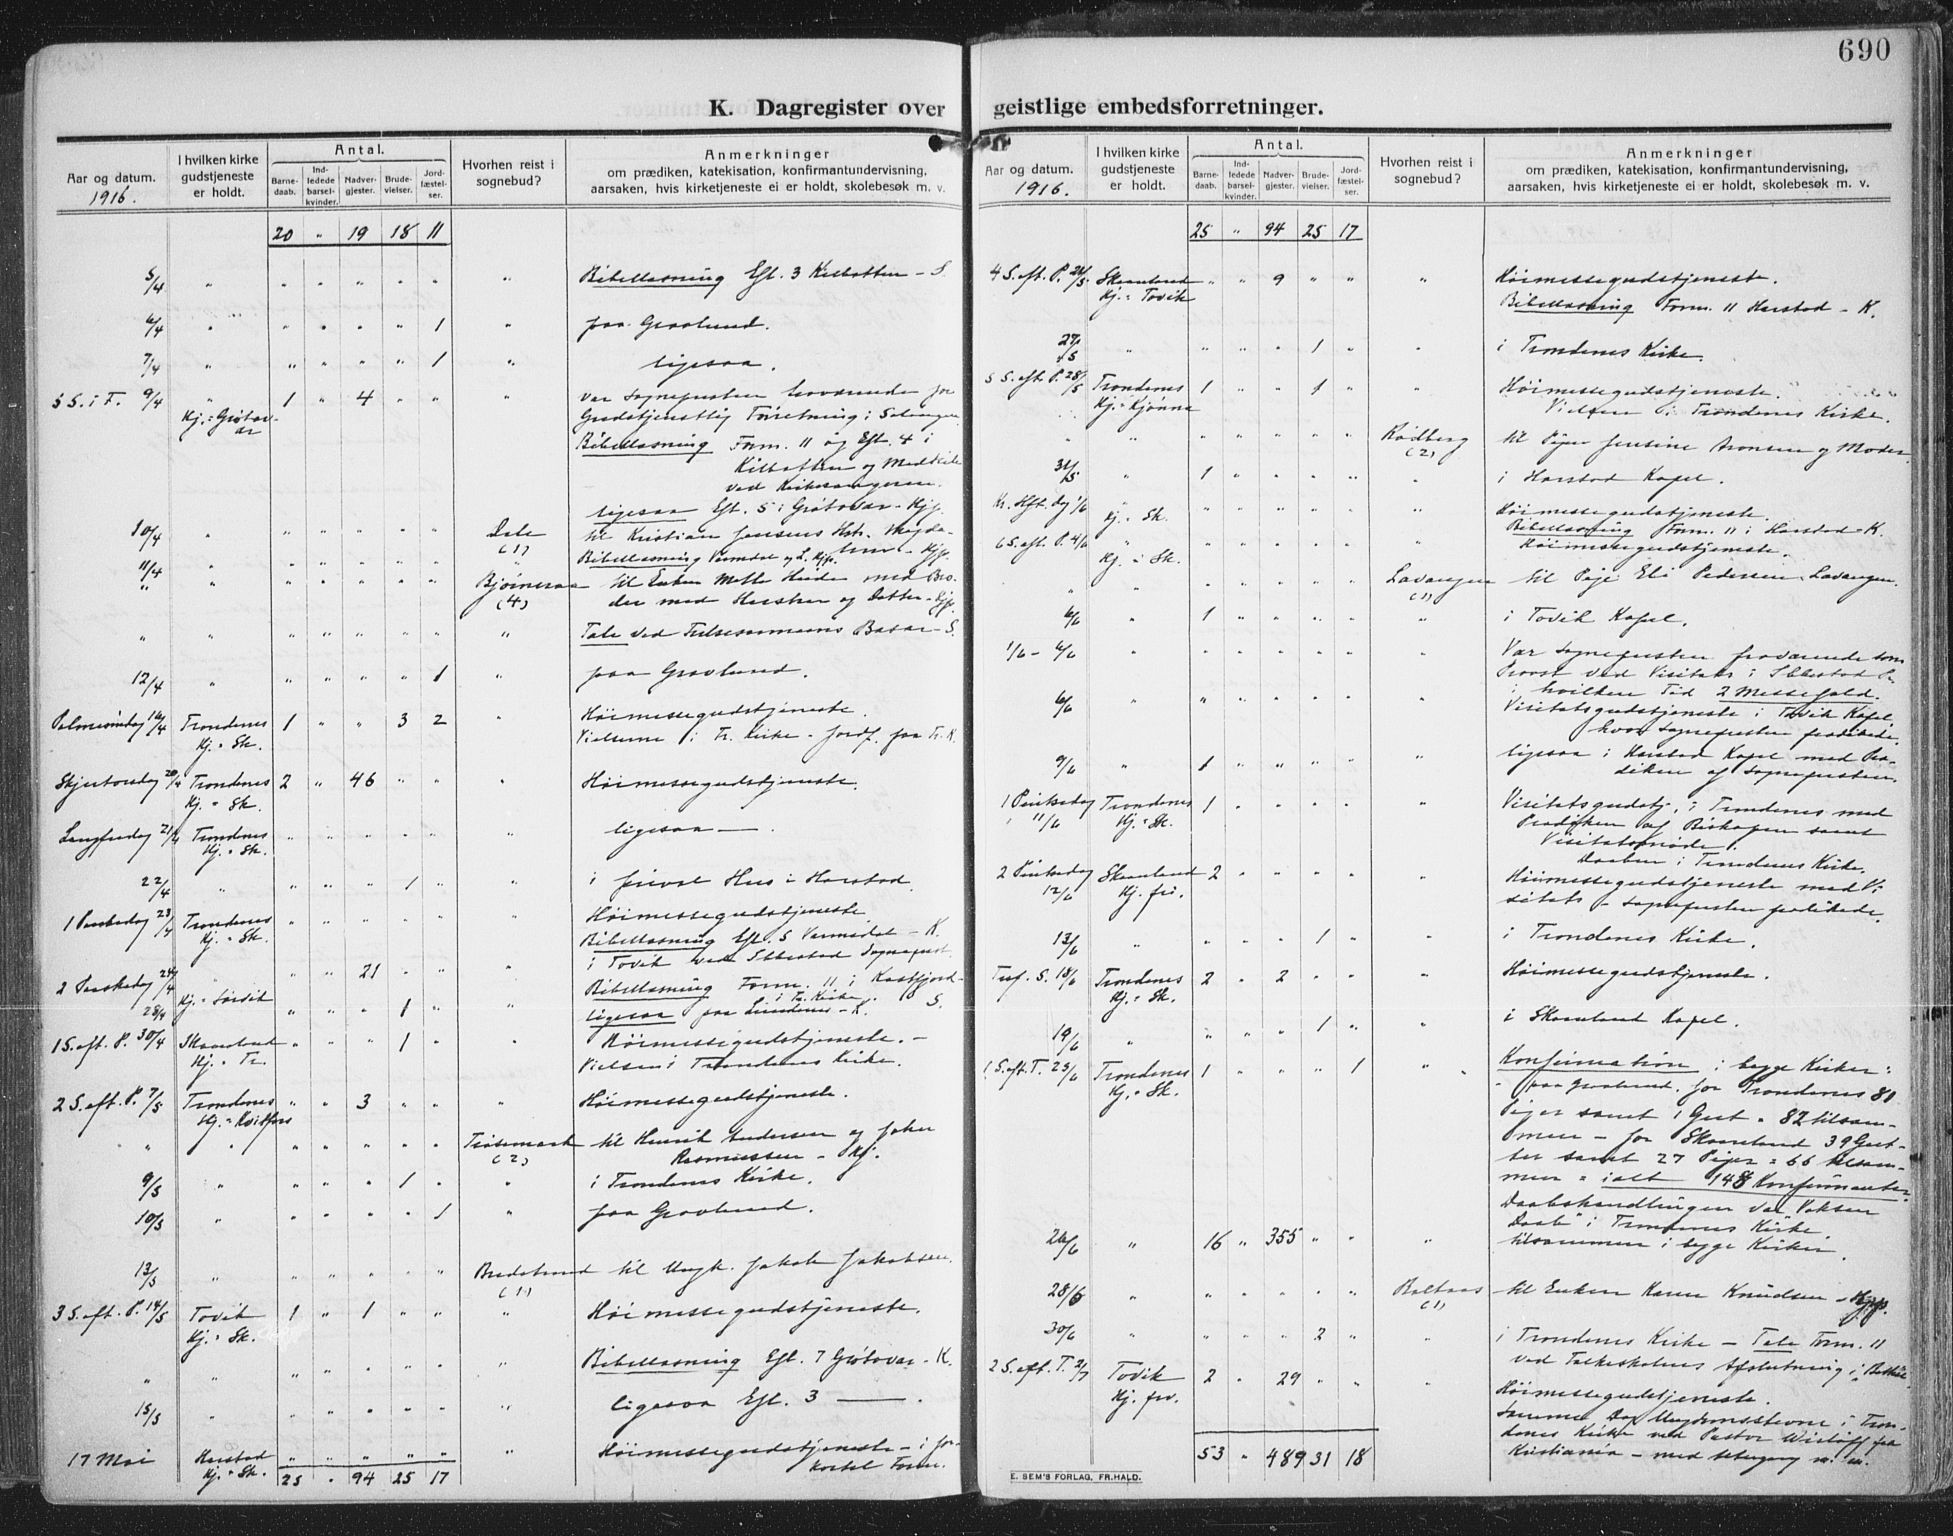 690
K. Dagregister over geistlige embedsforretninger.
Aar og datum.
1916.
I hvilken kirke
gudstjeneste
er holdt.
Antal.
Barne-
daab.
Ind-
ledede
barsel-
kvinder.
Nadver-
gjester.
Brude-
vielser.
Jord-
fæstel-
ser.
Hvorhen reist i
sognebud?
Anmerkninger
om prædiken, katekisation, konfirmantundervisning,
aarsaken, hvis kirketjeneste ei er holdt, skolebesøk m. v.
20 " 19 18 11
5/4 " " " " " " " Bibellæsning Eft. 3 Kilbotten - S.
6/4 " " " " " 1 " paa Gravlund.
7/4 " " " " " 1 " ligesaa.
5 S. i F. 9/4 " 1 " 4 " " " var Sognepresten fraværende for
Kj. = Grøtavær
Gudstjenstlig Forretning i Salangen
Bibellæsning Form. 11 og Eft. 4 i
Kilbotten og Medkile
ved Kirkesangeren.
ligesaa Eft. 5 i Grøtavær - Hjp.
10/4 " " " " " " Dale (1) til Kristian Jensens Hstr. Magda-
Bibellæsning lene - Hjp.
11/4 " " " " " " Bjørneraa (4) til Enken Mette med Bro-
der med Hustru og Datter - Hjp.
" " " " " " " " Tale ved Basar - S.
12/4 " " " " " 1 " paa Gravlund.
Palmesøndag 16/4 Trondenes 1 " " 3 2 Høimessegudstjeneste.
Kj. = Sk.
Vielserne i Tr. Kirke - Jordf. paa Tr. K.
Skjærtorsdag 20/4 Trondenes 2 " 46 " " " Høimessegudstjeneste.
Kj. = Sk.
Langfredag 21/4 Trondenes " " " " " " ligesaa — .
Kj. = Sk.
22/4 " " " " 1 " " i privat Hus i Harstad.
1 Paaskedag 23/4 Trondenes " " " " " " Høimessegudstjeneste.
Kj. = Sk.
Bibellæsning Eft. 5 - K.
2 Paaskedag 24/4 " " " 21 " " " i Tovik ved Ibbestad Sogneprest
Kj. = Sørvik
Bibellæsning Form. 11 i Kasfjord -
S.
28/4 " " " 1 " " i Tr. Kirke.
ligesaa paa - K.
1 S. eft. P. 30/4 Skaanland " " " 1 " " Høimessegudstjeneste. -
Kj. = Tr.
Vielsen i Trondenes Kirke.
2 S. eft. P. 7/5 Trondenes " " 3 " " " Høimessegudstjeneste.
Kj. = Kvitfors
" " " " " " " (2) til Henrik Andersen og Johan
Rasmussen - Hj.
9/5 " " " " 1 " " i Trondenes Kirke.
10/5 " " " " " 1 " paa Gravlund.
13/5 " " " " " " (1) til Ungk. Jakob Jakobsen.
3 S. eft. P. 14/5 Tovik 1 " 1 " " " Høimessegudstjeneste.
Kj. = Sk.
" " " " " " " " Bibellæsning Eft. 7 Grøtavær - K.
15/5 " " " " " " " ligesaa Eft. 3 — .
17 Mai Harstad " " " " " " Høimessegudstjeneste - i for-
Kj. = Sk.
kortet Form.
25 " 94 25 17
Aar og datum.
1916.
I hvilken kirke
gudstjeneste
er holdt.
Antal.
Barne-
daab.
Ind-
ledede
barsel-
kvinder.
Nadver-
gjester.
Brude-
vielser.
Jord-
fæstel-
ser.
Hvorhen reist i
sognebud?
Anmerkninger
om prædiken, katekisation, konfirmantundervisning,
aarsaken, hvis kirketjeneste ei er holdt, skolebesøk m. v.
25 " 94 25 17
4 S. eft. P. 21/5 Skaanland " " 9 " " " Høimessegudstjeneste.
Kj. = Tovik
Bibellæsning Form. 11 Harstad - K.
27/5 " " " " 1 " " i Trondenes Kirke.
5 S. eft. P. 28/5 Trondenes 1 " " 1 " " Høimessegudstjeneste.
Kj. = Kjønna
Vielsen i Trondenes Kirke.
" " " " " " " Rødberg (2) til Pigen Jensine Aronsen og Moder.
31/5 " 1 " " " " " i Harstad Kapel.
Kr. Hft. Dag 1/6 " " " " " " " Høimessegudstjeneste.
Kj. = Sk.
Bibellæsning Form. 11 i Harstad - K.
6 S. eft. P. 4/6 " " " " " " " Høimessegudstjeneste.
Kj. = Sk.
" " " " " " " Lavangen (1) til Pige Eli Pedersen Lavangen.
6/6 " 1 " " " " " i Tovik Kapel.
1/6 - 6/6 " " " " " " " Var Sognepresten fraværende som
Provst ved Visitats i Ibbestad Pr.
i hvilken Tid 2 Messefald.
6/6 " " " " " " " Visitatsgudstjeneste i Tovik Kapel,
hvor Sognepresten prædikede.
9/6 " 1 " " " " " ligesaa i Harstad Kapel med Præ-
diken af Sognepresten.
1 Pinsedag 11/6 Trondenes 1 " " " " " Visitatsgudstj. i Trondenes med
Kj. = Sk.
Prædiken af Biskopen samt
Visitatsmøde.
Daaben i Trondenes Kirke.
2 Pinsedag 12/6 Skaanland 2 " " " " " Høimessegudstjeneste med Vi-
Kj. fri.
sitats - Sognepresten prædikede.
13/6 " " " " 1 " " i Trondenes Kirke.
Tref. S. 18/6 Trondenes 2 " 2 " " " Høimessegudstjeneste.
Kj. = Sk.
19/6 " " " " 1 " " i Skaanland Kapel.
1 S. eft. T. 25/6 Trondenes 1 " " " 1 " Konfirmation i begge Kirker:
Kj. = Sk.
- paa Gravlund. for Trondenes 81
Piger samt 1 Gut = 82 tilsam-
men - for Skaanland 39 Gut-
ter samt 27 Piger = 66 tilsam-
men = ialt 148 Konfirmanter.
Daabshandlingen var Voksen
Daab i Trondenes Kirke.
26/6 " 16 " 355 " " " tilsammen i begge Kirker.
28/6 " " " " " " (1) til Enken Karen Knudsen - Hjp.
30/6 " " " " 2 " " i Trondenes Kirke - Tale Form. 11
ved Folkeskolens Afslutning i
2 S. eft. T. 2/7 Tovik 2 " 29 " " " Høimessegudstjeneste.
Kj. fri.
Samme Dag Ungdomsstevne i Tron-
denes Kirke ved Pastor Wisløff fra
Kristiania - med m. m.
53 " 489 31 18
E. SEM'S FORLAG, FR.HALD.